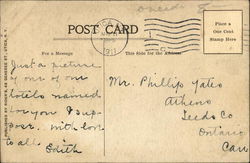 Oneida 8
UTICA
1911
POST CARD
Place a
One Cent
Stamp Here
For a Message
This Side for the Address
Just a picture
of one of our
hotels named
for you I sup-
pose. with love
to all
Edith
Mr. Phillip Yates
Athens
Leeds Co
Ontario
Can